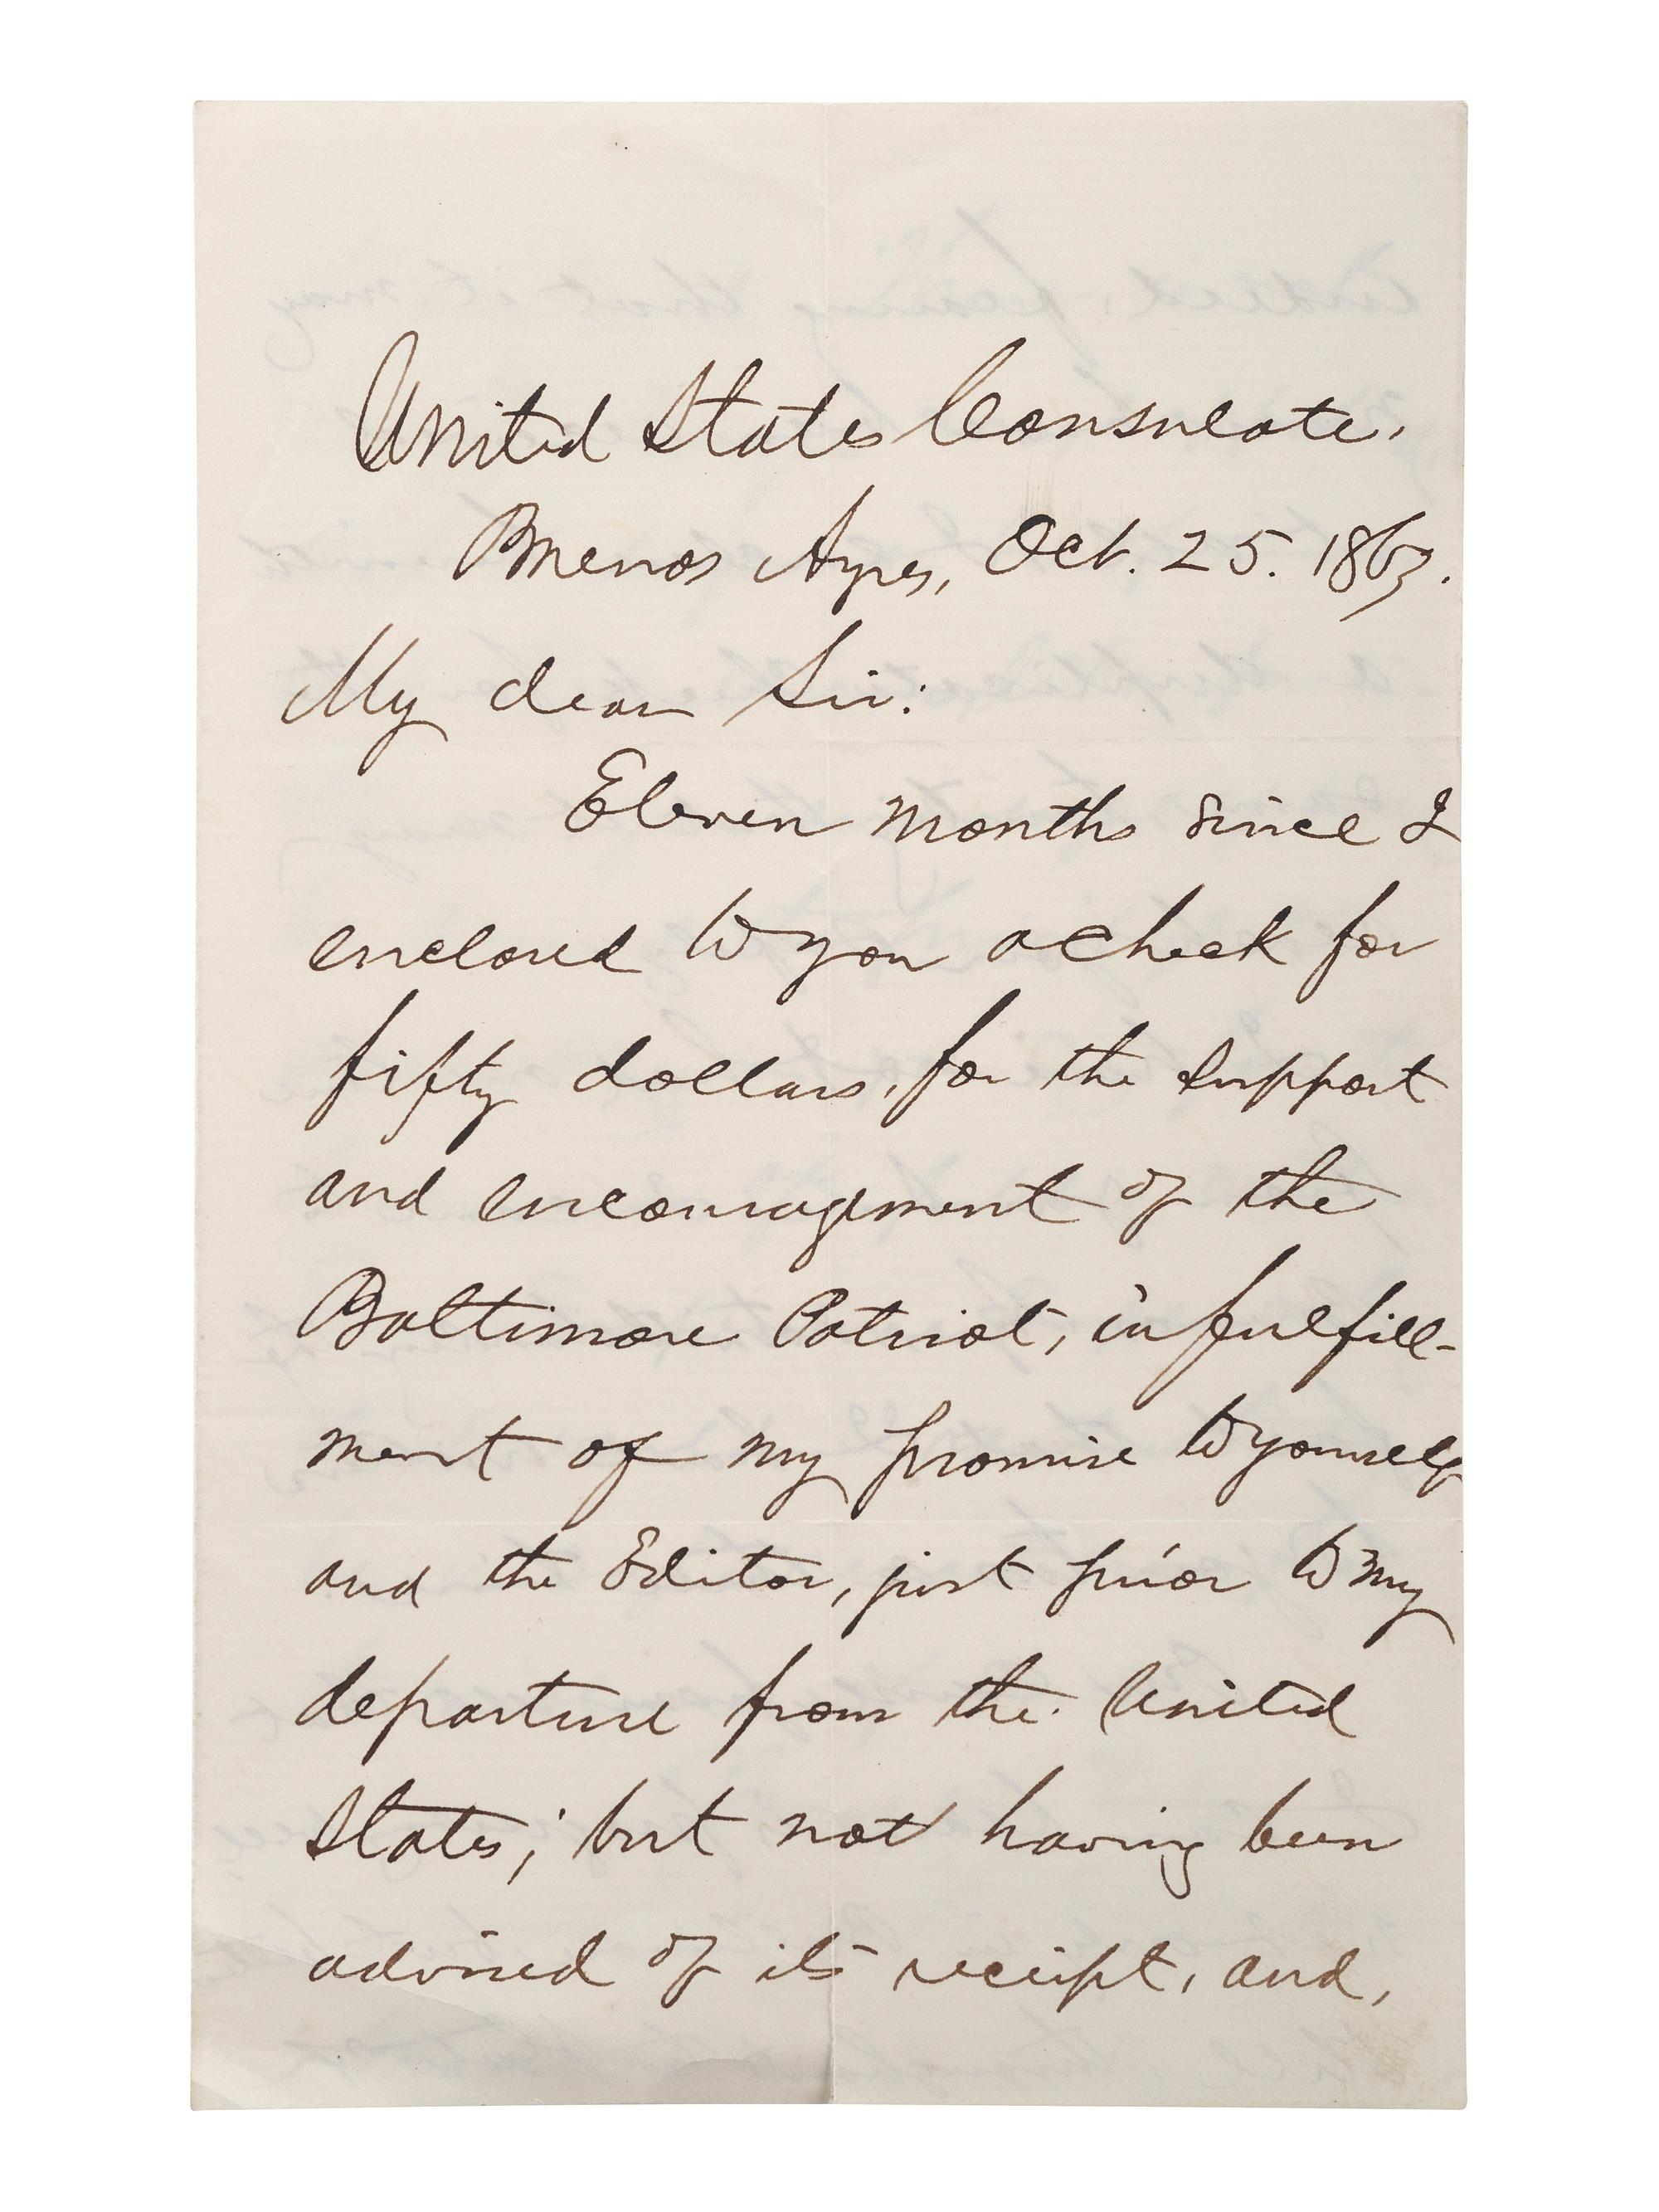 United States Consulate.
Buenos Ayres, Oct. 25. 1863.
My dear Sir:
Eleven months since I
enclosed to you a check for
fifty dollars, for the support
and encouragement of the
Baltimore Patriot, in fulfill-
ment of my promise to yourself
and the Editor, just prior to my
departure from the United
States; but not having been
advised of its receipt, and,